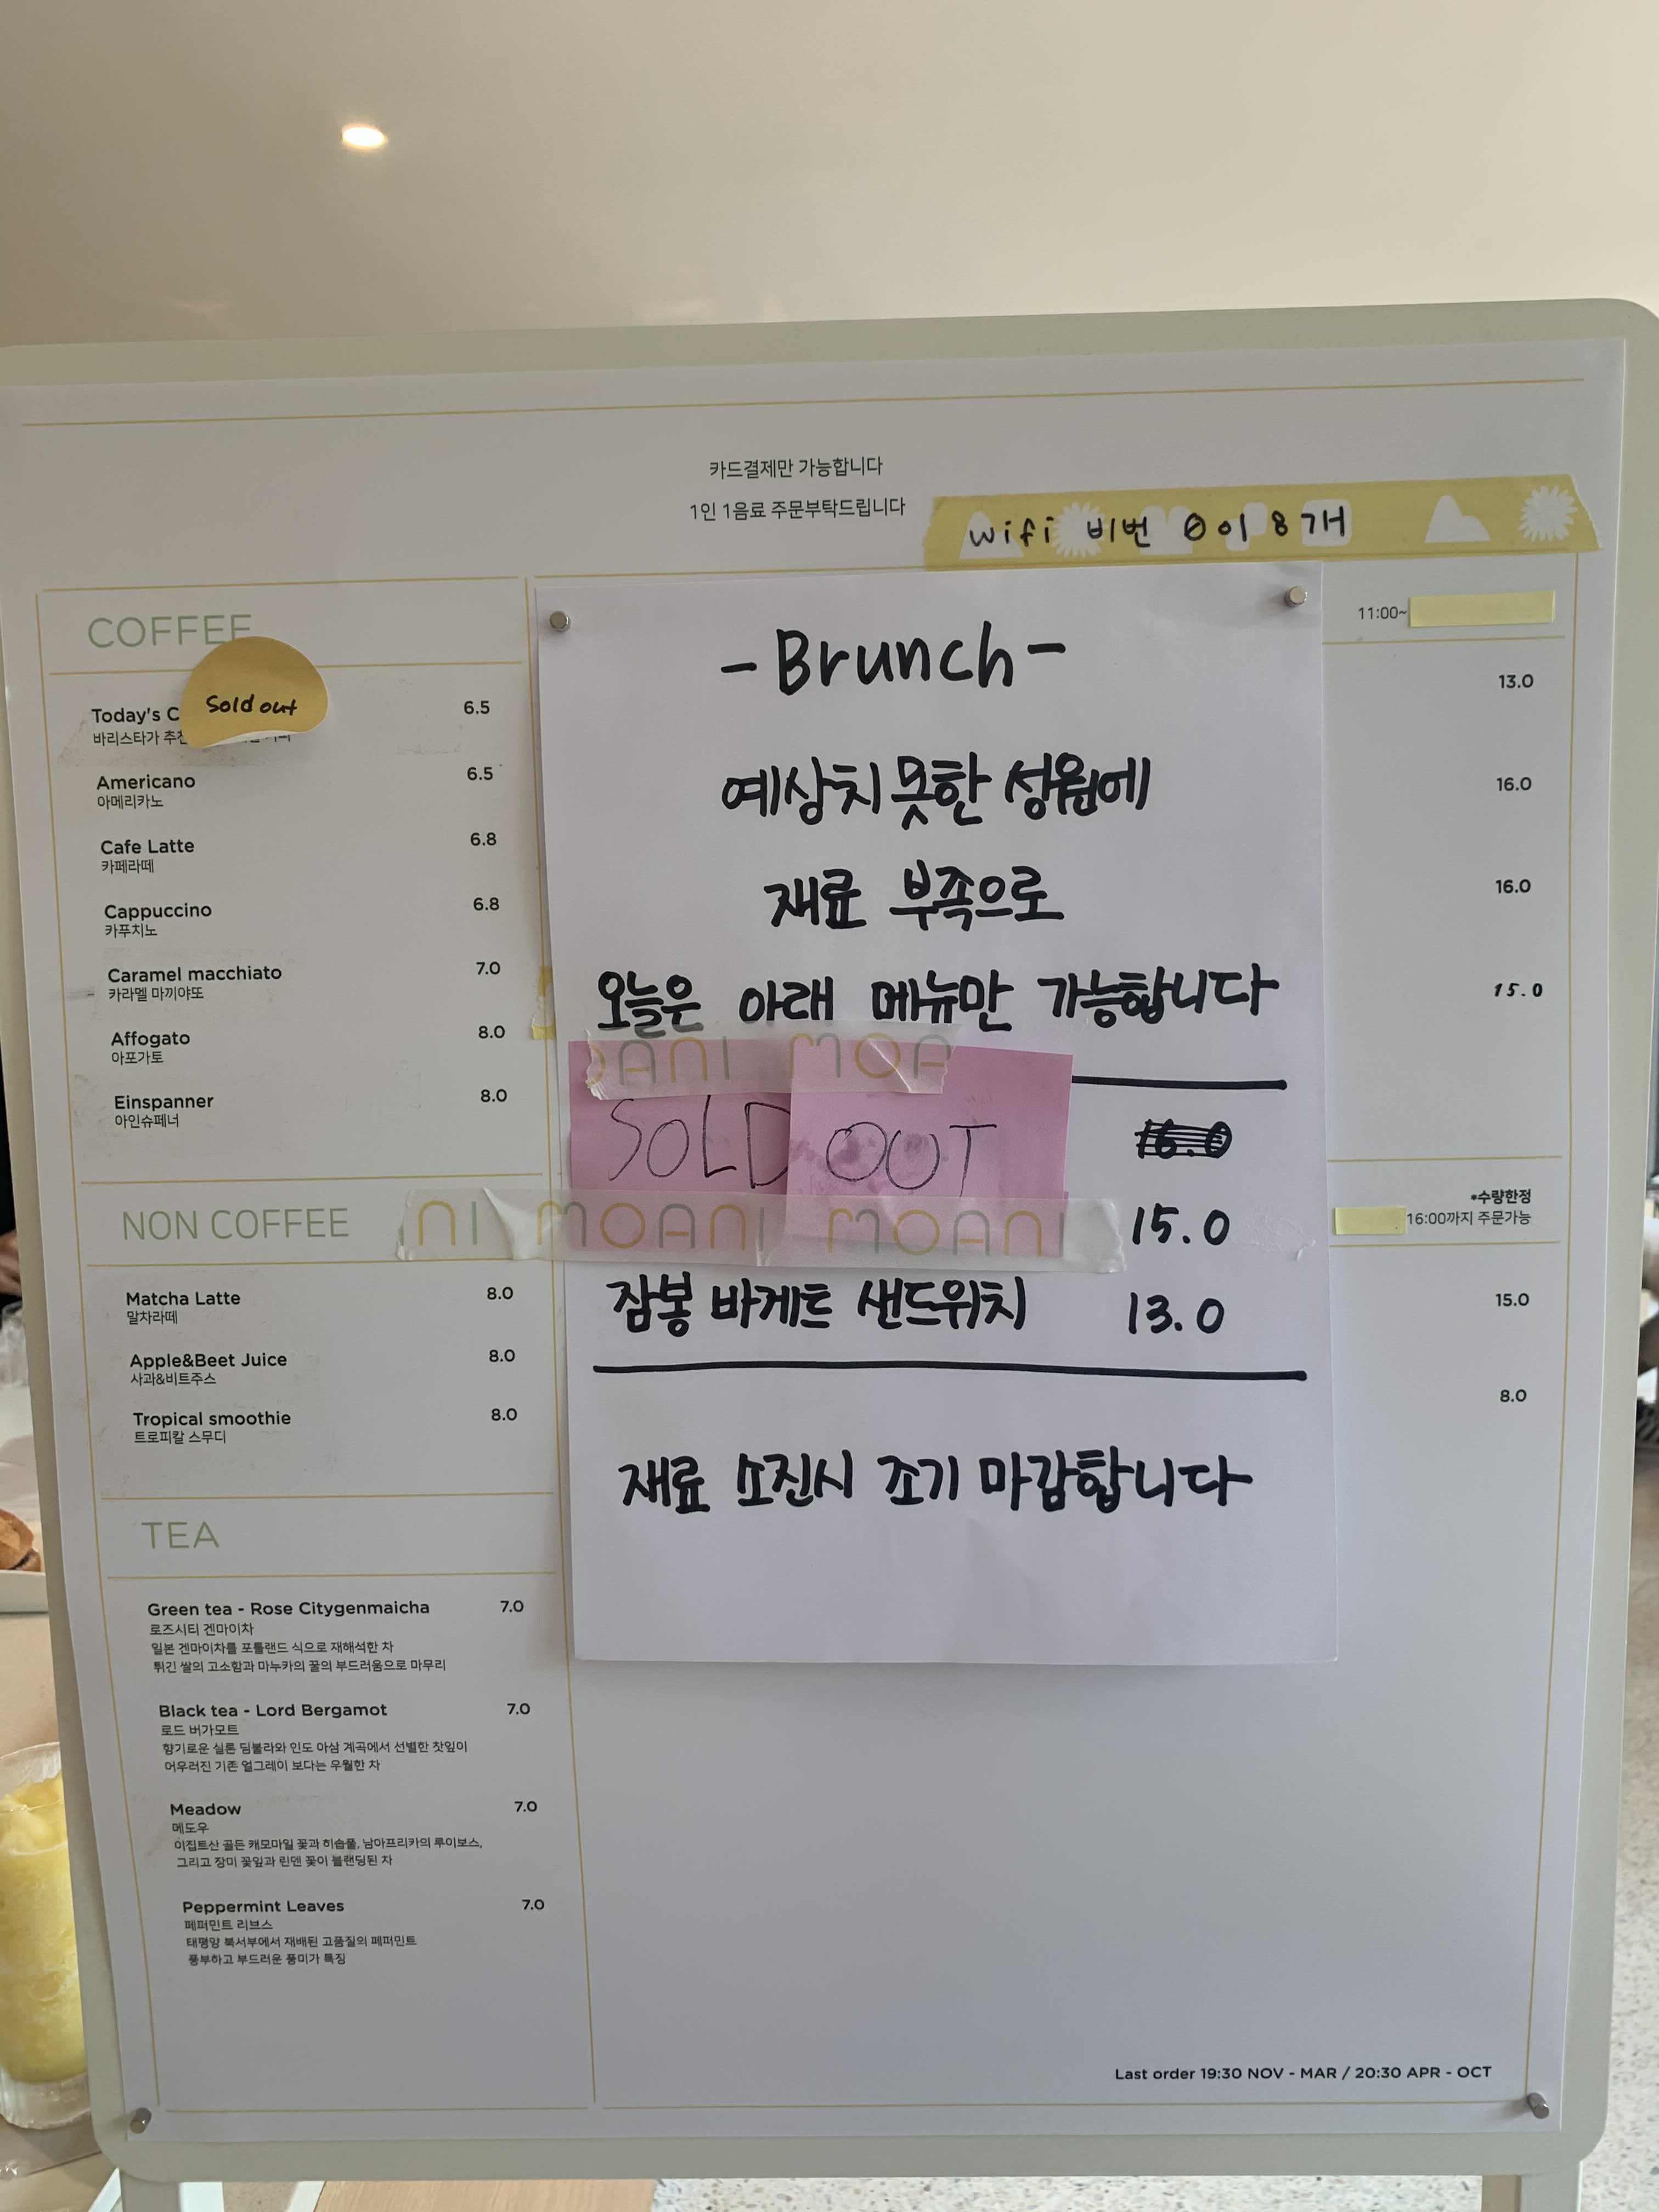 카드결제만 가능합니다
1인 1음료 주문부탁드립니다
wifi 비번 0이 8개
COFFEE
Sold out
Today's C 6.5
바리스타가 추천
Americano 6.5
아메리카노
Cafe Latte 6.8
카페라떼
Cappuccino 6.8
카푸치노
Caramel macchiato 7.0
카라멜 마끼야또
Affogato 8.0
아포가토
Einspanner 8.0
아인슈페너
NON COFFEE
Matcha Latte 8.0
말차라떼
Apple&Beet Juice 8.0
사과&비트주스
Tropical smoothie 8.0
트로피칼 스무디
TEA
Green tea - Rose Citygenmaicha 7.0
로즈시티 겐마이차
일본 겐마이차를 포틀랜드 식으로 재해석한 차
튀긴 쌀의 고소함과 마누카의 꿀의 부드러움으로 마무리
Black tea - Lord Bergamot 7.0
로드 버가모트
향기로운 실론 딤불라와 인도 아삼 계곡에서 선별한 찻잎이
어우러진 기존 얼그레이 보다는 우월한 차
Meadow 7.0
메도우
이집트산 골든 캐모마일 꽃과 히솝풀, 남아프리카의 루이보스,
그리고 장미 꽃잎과 린덴 꽃이 블랜딩된 차
Peppermint Leaves 7.0
페퍼민트 리브스
태평양 북서부에서 재배된 고품질의 페퍼민트
풍부하고 부드러운 풍미가 특징
- Brunch -
예상치 못한 성원에
재료 부족으로
오늘은 아래 메뉴만 가능합니다
OANI MOA
SOLD OUT 16.0
NI MOANI MOANI 15.0
잠봉 바게트 샌드위치 13.0
재료 소진시 조기 마감합니다
11:00~
13.0
16.0
16.0
15.0
*수량한정
16:00까지 주문가능
15.0
8.0
Last order 19:30 NOV - MAR / 20:30 APR - OCT